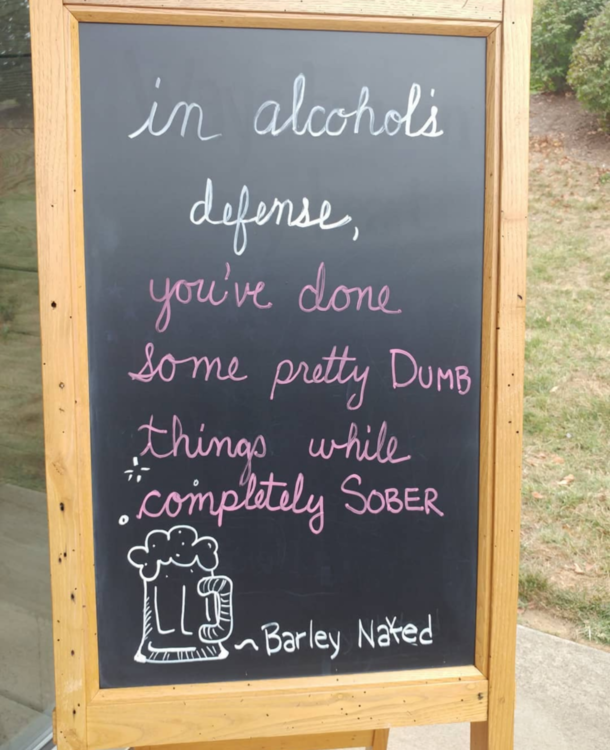 in alcohol's
defense,
you've done
some pretty DUMB
things while
completely SOBER
~Barley Naked